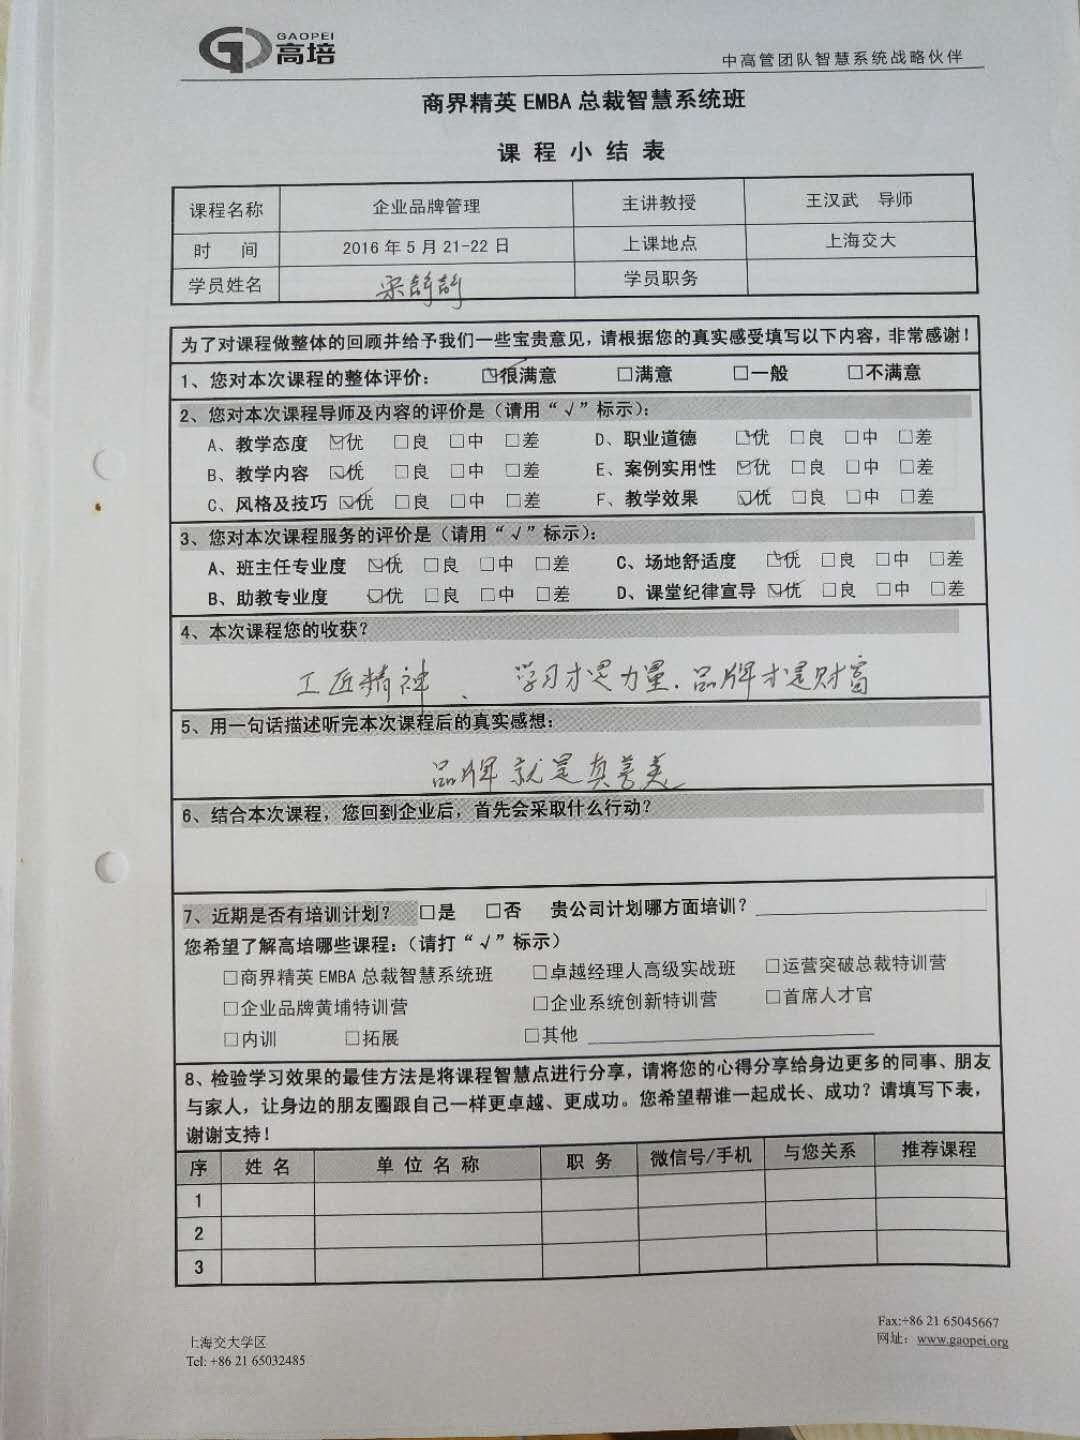 GAOPEI
高培
中高管团队智慧系统战略伙伴
商界精英 EMBA 总裁智慧系统班
课 程 小 结 表
课程名称 企业品牌管理 主讲教授 王汉武 导师
时 间 2016 年 5 月 21-22 日 上课地点 上海交大
学员姓名 学员职务
为了对课程做整体的回顾并给予我们一些宝贵意见，请根据您的真实感受填写以下内容，非常感谢！
1、您对本次课程的整体评价： ☑很满意 □满意 □一般 □不满意
2、您对本次课程导师及内容的评价是（请用“√”标示）：
A、教学态度 ☑优 □良 □中 □差 D、职业道德 ☑优 □良 □中 □差
B、教学内容 ☑优 □良 □中 □差 E、案例实用性 ☑优 □良 □中 □差
C、风格及技巧 ☑优 □良 □中 □差 F、教学效果 ☑优 □良 □中 □差
3、您对本次课程服务的评价是（请用“√”标示）：
A、班主任专业度 ☑优 □良 □中 □差 C、场地舒适度 ☑优 □良 □中 □差
B、助教专业度 ☑优 □良 □中 □差 D、课堂纪律宣导 ☑优 □良 □中 □差
4、本次课程您的收获？
工匠精神、学习才是力量.品牌才是财富
5、用一句话描述听完本次课程后的真实感想：
品牌就是真善美
6、结合本次课程，您回到企业后，首先会采取什么行动？
7、近期是否有培训计划？ □是 □否 贵公司计划哪方面培训？
您希望了解高培哪些课程：（请打“√”标示）
□商界精英 EMBA 总裁智慧系统班 □卓越经理人高级实战班 □运营突破总裁特训营
□企业品牌黄埔特训营 □企业系统创新特训营 □首席人才官
□内训 □拓展 □其他
8、检验学习效果的最佳方法是将课程智慧点进行分享，请将您的心得分享给身边更多的同事、朋友
与家人，让身边的朋友圈跟自己一样更卓越、更成功。您希望帮谁一起成长、成功？请填写下表，
谢谢支持！
序 姓 名 单 位 名 称 职 务 微信号/手机 与您关系 推荐课程
1
2
3
上海交大学区
Tel: +86 21 65032485
Fax:+86 21 65045667
网址：www.gaopei.org